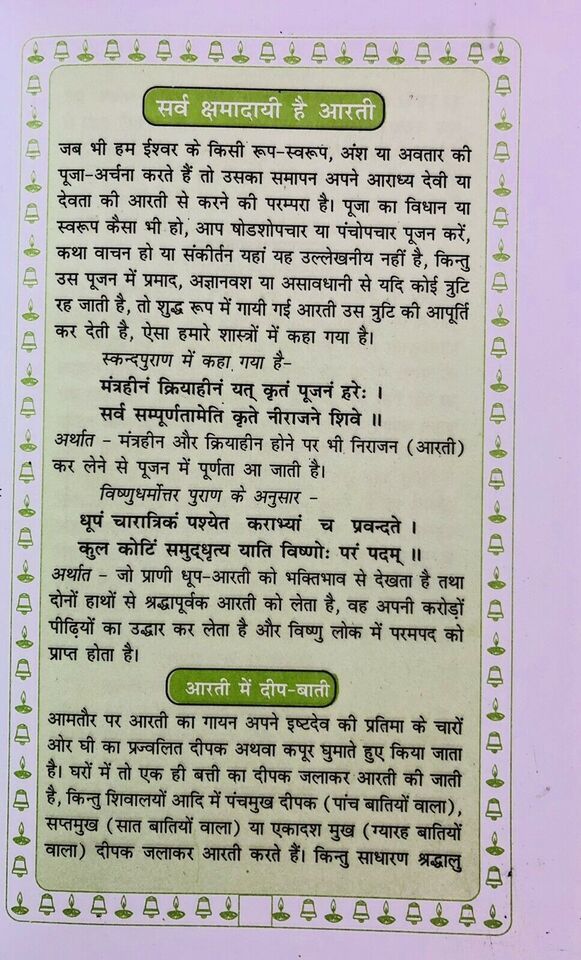 सर्व क्षमादायी है आरती
जब भी हम ईश्वर के किसी रूप-स्वरूप, अंश या अवतार की
पूजा-अर्चना करते हैं तो उसका समापन अपने आराध्य देवी या
देवता की आरती से करने की परम्परा है। पूजा का विधान या
स्वरूप कैसा भी हो, आप षोडशोपचार या पंचोपचार पूजन करें,
कथा वाचन हो या संकीर्तन यहां यह उल्लेखनीय नहीं है, किन्तु
उस पूजन में प्रमाद, अज्ञानवश या असावधानी से यदि कोई त्रुटि
रह जाती है, तो शुद्ध रूप में गायी गई आरती उस त्रुटि की आपूर्ति
कर देती है, ऐसा हमारे शास्त्रों में कहा गया है।
स्कन्दपुराण में कहा गया है-
मंत्रहीनं क्रियाहीनं यत् कृतं पूजनं हरेः ।
सर्व सम्पूर्णतामेति कृते नीराजने शिवे ॥
अर्थात - मंत्रहीन और क्रियाहीन होने पर भी निराजन (आरती)
कर लेने से पूजन में पूर्णता आ जाती है।
विष्णुधर्मोत्तर पुराण के अनुसार -
धूपं चारात्रिकं पश्येत कराभ्यां च प्रवन्दते ।
कुल कोटिं समुद्धृत्य याति विष्णोः परं पदम् ॥
अर्थात - जो प्राणी धूप-आरती को भक्तिभाव से देखता है तथा
दोनों हाथों से श्रद्धापूर्वक आरती को लेता है, वह अपनी करोड़ों
पीढ़ियों का उद्धार कर लेता है और विष्णु लोक में परमपद को
प्राप्त होता है।
आरती में दीप-बाती
आमतौर पर आरती का गायन अपने इष्टदेव की प्रतिमा के चारों
ओर घी का प्रज्वलित दीपक अथवा कपूर घुमाते हुए किया जाता
है। घरों में तो एक ही बत्ती का दीपक जलाकर आरती की जाती
है, किन्तु शिवालयों आदि में पंचमुख दीपक (पांच बातियों वाला),
सप्तमुख (सात बातियों वाला) या एकादश मुख (ग्यारह बातियों
वाला) दीपक जलाकर आरती करते हैं। किन्तु साधारण श्रद्धालु